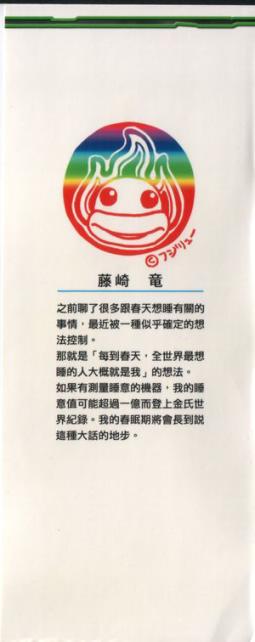 ©フジリュー
藤崎 竜
之前聊了很多跟春天想睡有關的
事情，最近被一種似乎確定的想
法控制。
那就是「每到春天，全世界最想
睡的人大概就是我」的想法。
如果有測量睡意的機器，我的睡
意值可能超過一億而登上金氏世
界紀錄。我的春眠期將會長到說
這種大話的地步。